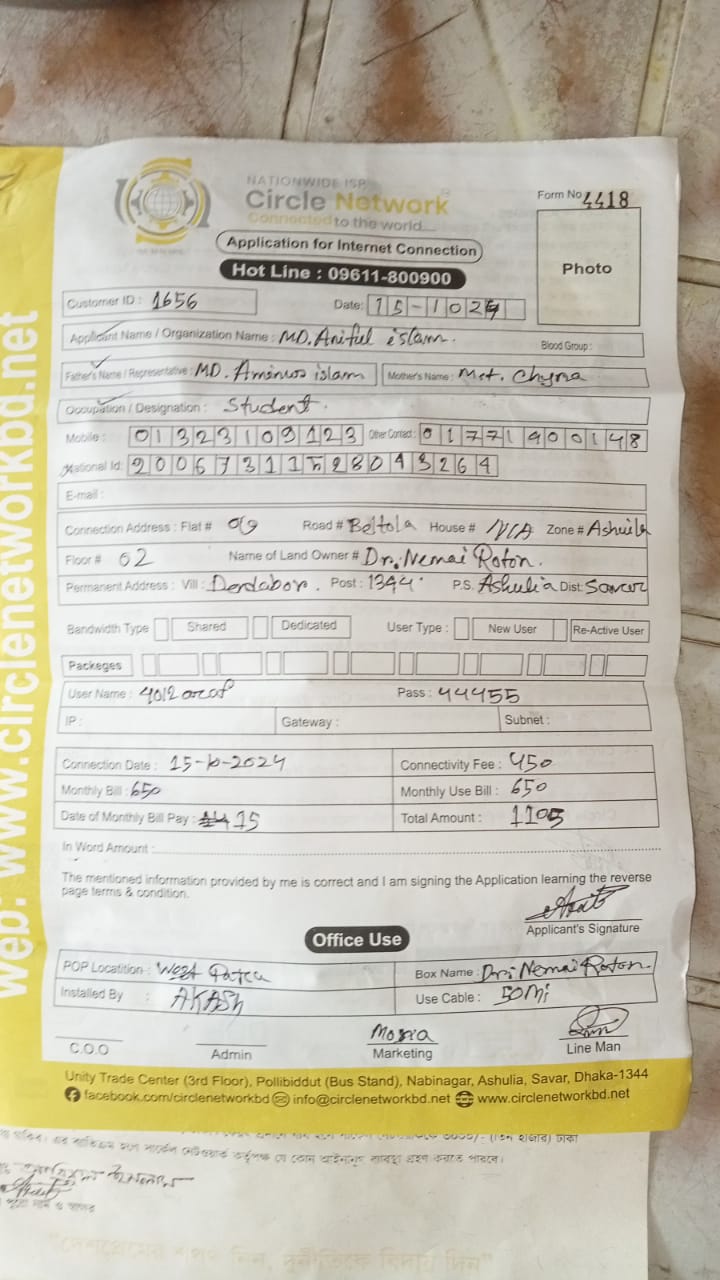 NATIONWIDE ISP
Circle Network
Connected to the world...
Form No 4418
Application for Internet Connection
Hot Line : 09611-800900
Photo
Customer ID : 1656 Date: 15-1024
Applicant Name / Organization Name : MD. Ariful islam. Blood Group :
Father's Name / Representative : MD. Aminus islam Mother's Name : Mst. Chyna
Occupation / Designation : Student.
Mobile : 01323109123 Other Contact : 01771900148
National Id: 20067311528043264
E-mail :
Connection Address : Flat # Road # Beltola House # N/A Zone # Ashulia
Floor # 02 Name of Land Owner # Dr. Nemai Roton.
Permanent Address : Vill : Dendabor. Post : 1344 P.S. Ashulia Dist: Savar
Bandwidth Type Shared Dedicated User Type : New User Re-Active User
Packeges
User Name : 4012araf Pass : 44455
IP : Gateway : Subnet :
Connection Date : 15-10-2024 Connectivity Fee : 450
Monthly Bill : 650 Monthly Use Bill : 650
Date of Monthly Bill Pay : 15 Total Amount :
In Word Amount :
The mentioned information provided by me is correct and I am signing the Application learning the reverse
page terms & condition.
Applicant's Signature
Office Use
POP Locatition : West Box Name : Dr. Nemai Roton.
Installed By : AKASH Use Cable : 50Mi
C.O.O Admin Marketing Line Man
Unity Trade Center (3rd Floor), Pollibiddut (Bus Stand), Nabinagar, Ashulia, Savar, Dhaka-1344
facebook.com/circlenetworkbd info@circlenetworkbd.net www.circlenetworkbd.net
web: www.circlenetworkbd.net
"দেশপ্রেমের শপথ নিন, দুর্নীতিকে বিদায় দিন"